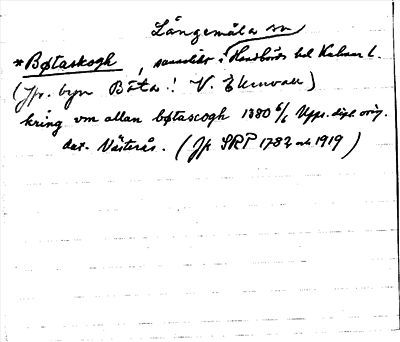 Långemåla sn
*Bøtaskogh, i Handbörds hd Kalmar l.
(Jfr. byn Böta! V. Ekenvall)
kring vm allan bøtascogh 1380 6/6 Upps. dipl. orig.
dat. Västerås. (Jfr SRP 1782 och 1919)